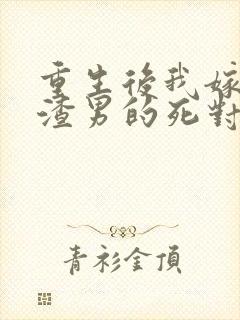 重生後我嫁
渣男的死對
青衫金頂